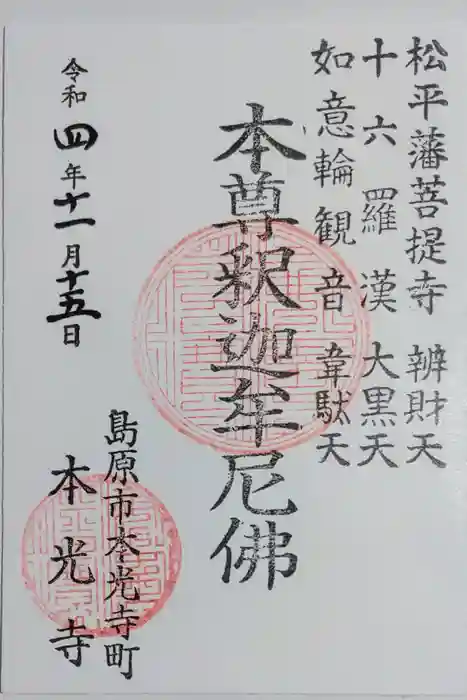 松平藩菩提寺 辨財天
十六羅漢 大黒天
如意輪観音 韋駄天
本尊釈迦牟尼佛
島原市本光寺町
本光寺
令和四年十一月十五日